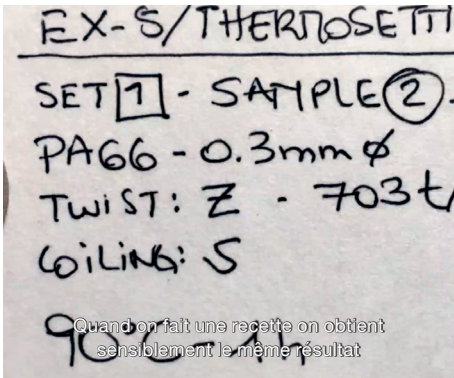 EX-S/THERMOSETTI
SET 1 - SAMPLE 2.
PA66 - 0.3mm ø
TWIST: Z - 703t/
COILING: S
90°C - 1h
Quand on fait une recette on obtient
sensiblement le même résultat